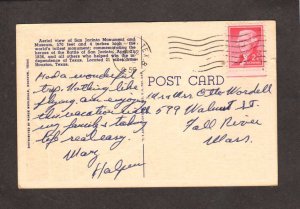 Aerial view of San Jacinto Monument and
Museum, 570 feet and 4 inches high - the
world's tallest monument commemorating the
heroes of the Battle of San Jacinto, April 21,
1836, and all others who helped win the in-
dependence of Texas. Located 21 miles from
Houston, Texas.
TEX
POST CARD
Had a wonderful
trip. Nothing like
flying, am enjoying
this vacation with
my family & taking
life real easy.
Mary
Halpen
Mr & Mrs Otto Wordell
579 Walnut St.
Fall River
Mass.